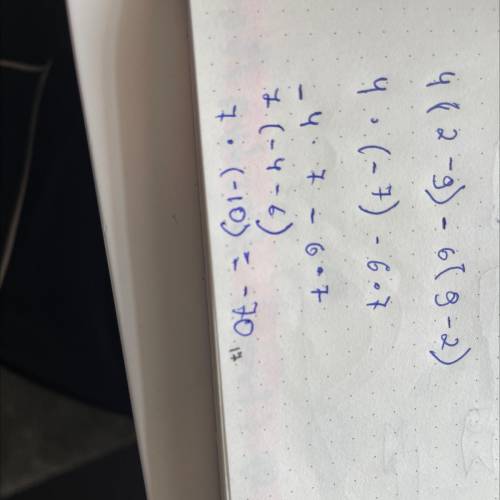 4(2-9)-6(9-2)
4·(-7)-6·7
-4·7-6·7
7(-4-6)
7·(-10)=-70